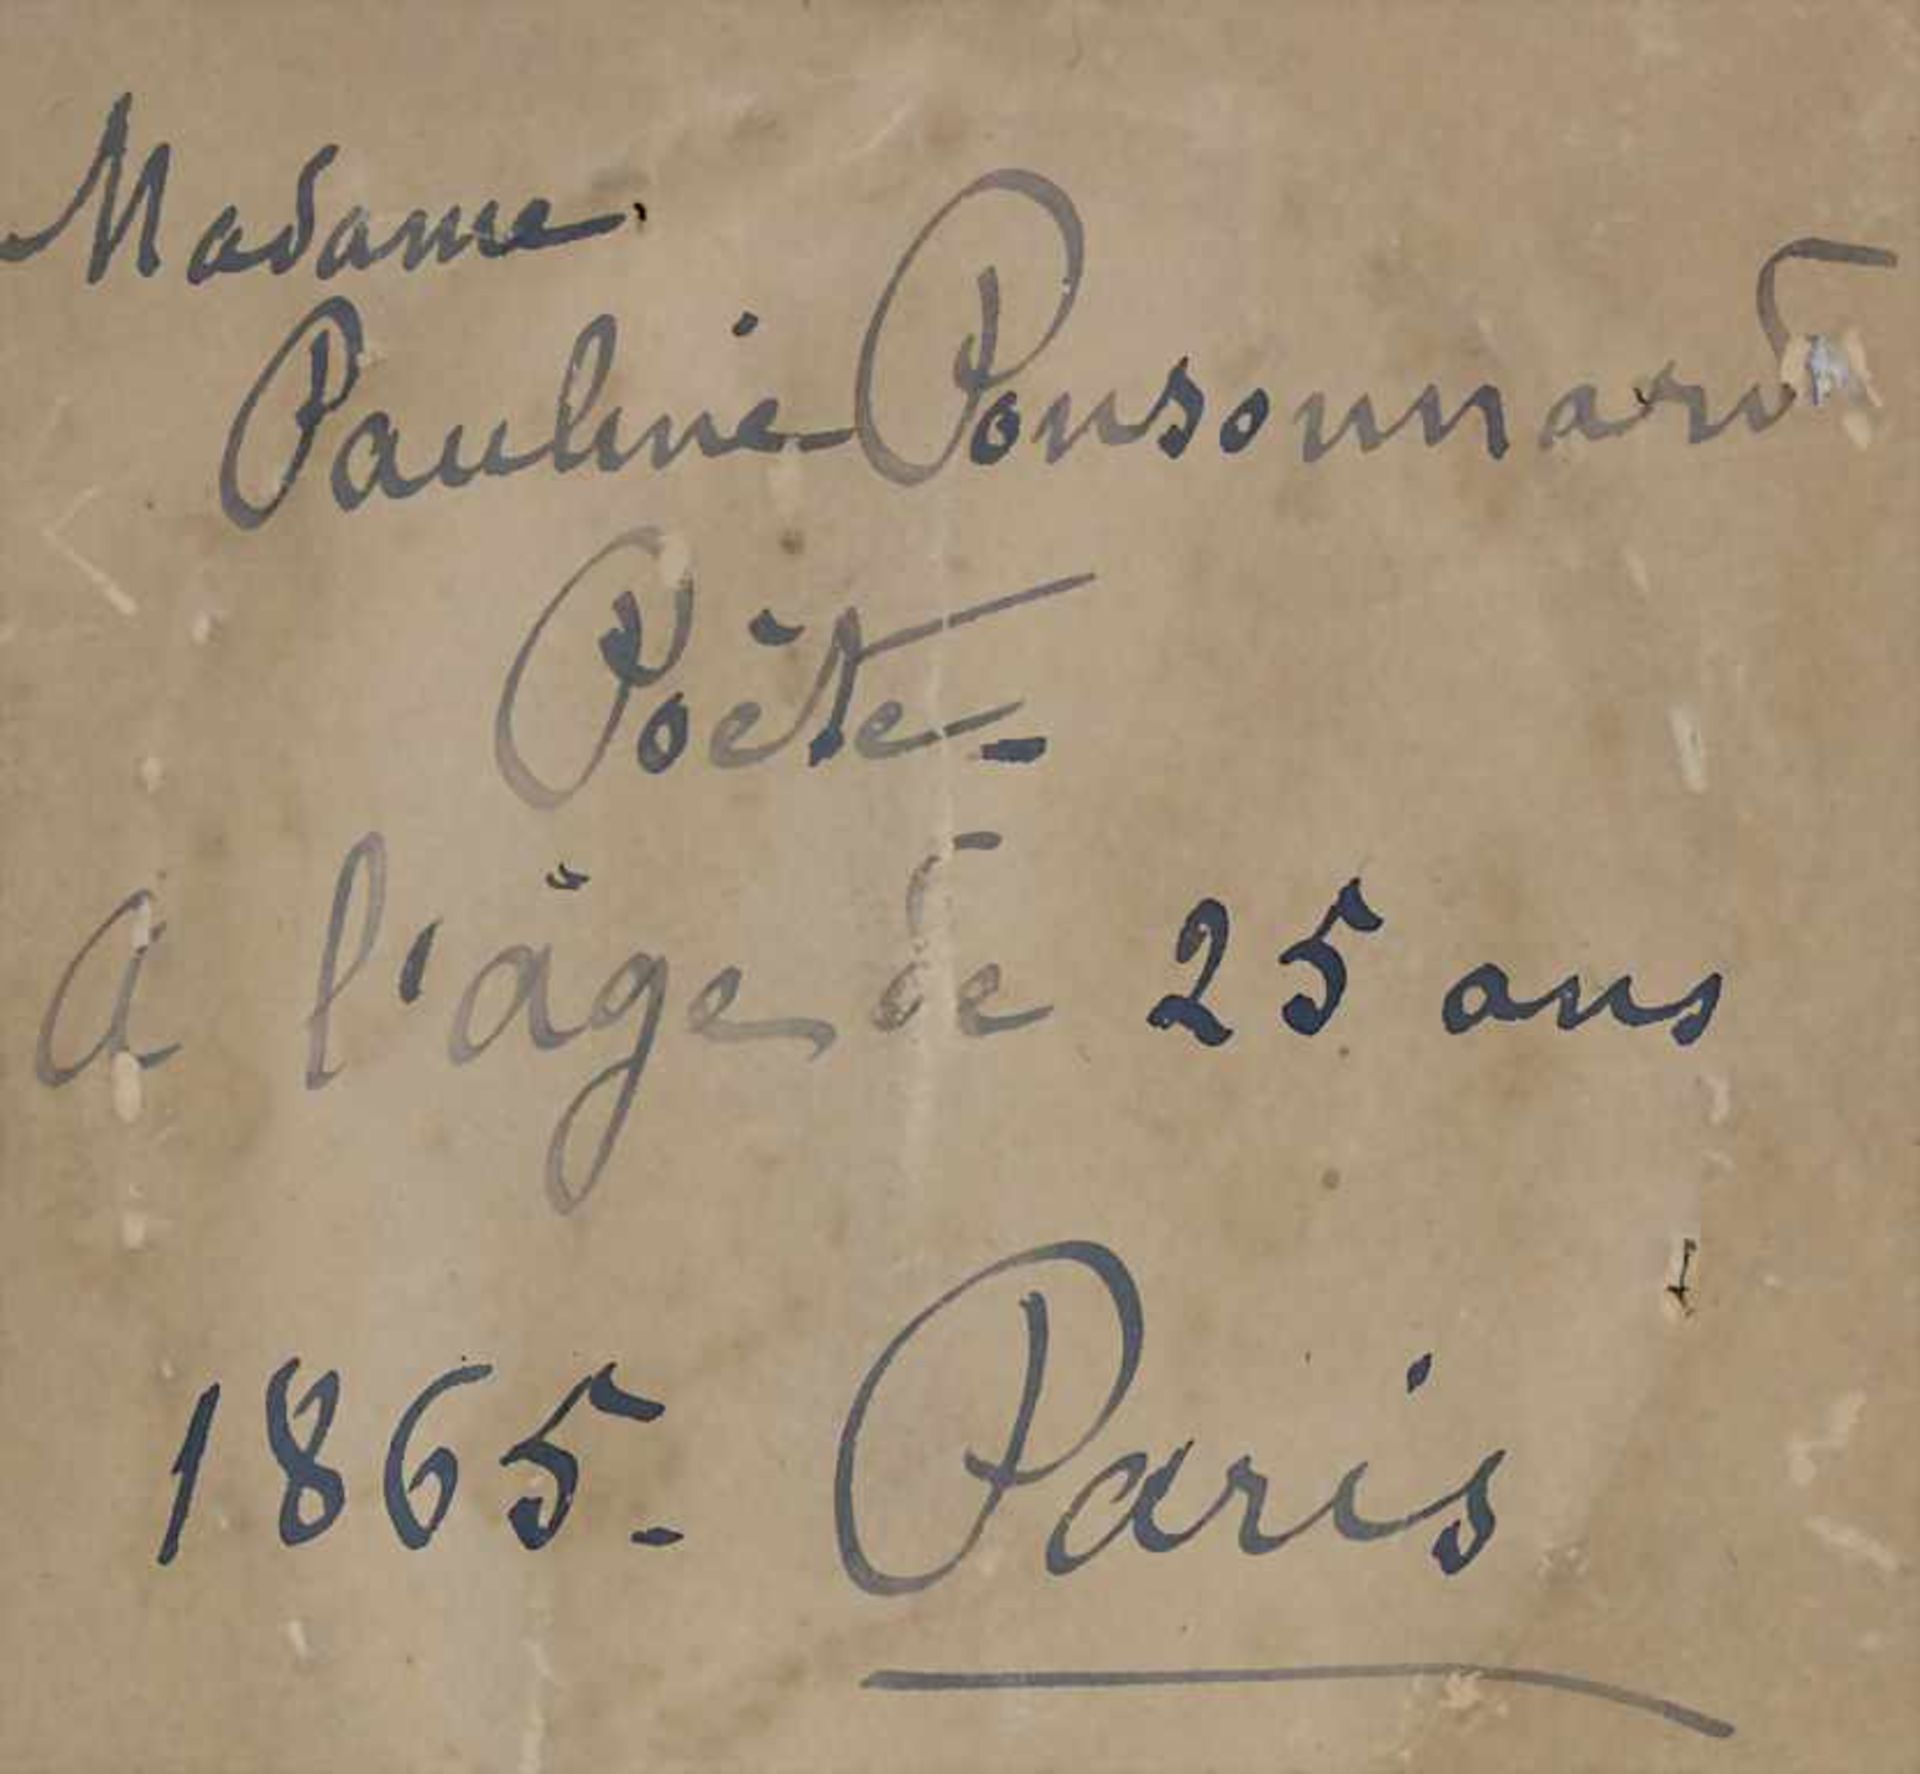 Madame
Pauline Ponsonnard
Poète -
A l'âge de 25 ans
1865 - Paris